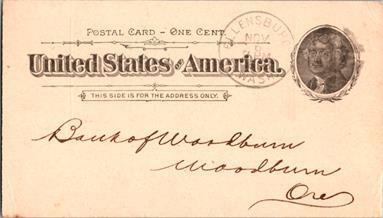 POSTAL CARD – ONE CENT.
United States of America.
THIS SIDE IS FOR THE ADDRESS ONLY.
ELLENSBURG
NOV
9
WASH.
Bank of Woodburn
Woodburn
Ore